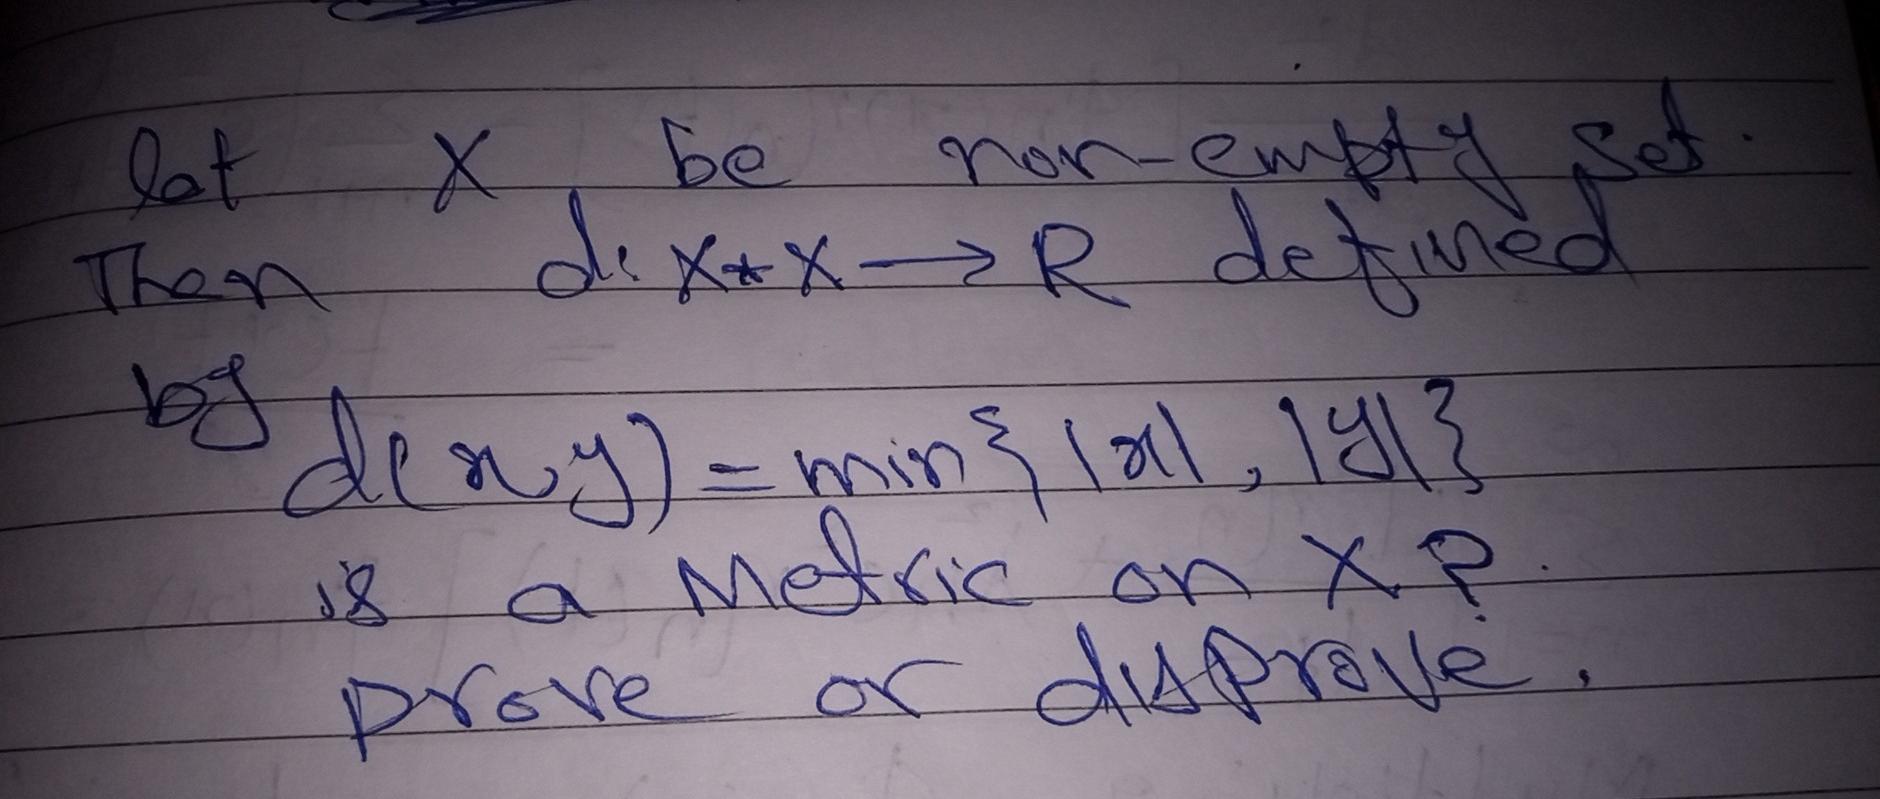 let X be non-empty set.
Then d: X*X → R defined
by
d(x,y) = min{|x|, |y|}
is a Metric on X?
prove or disprove.